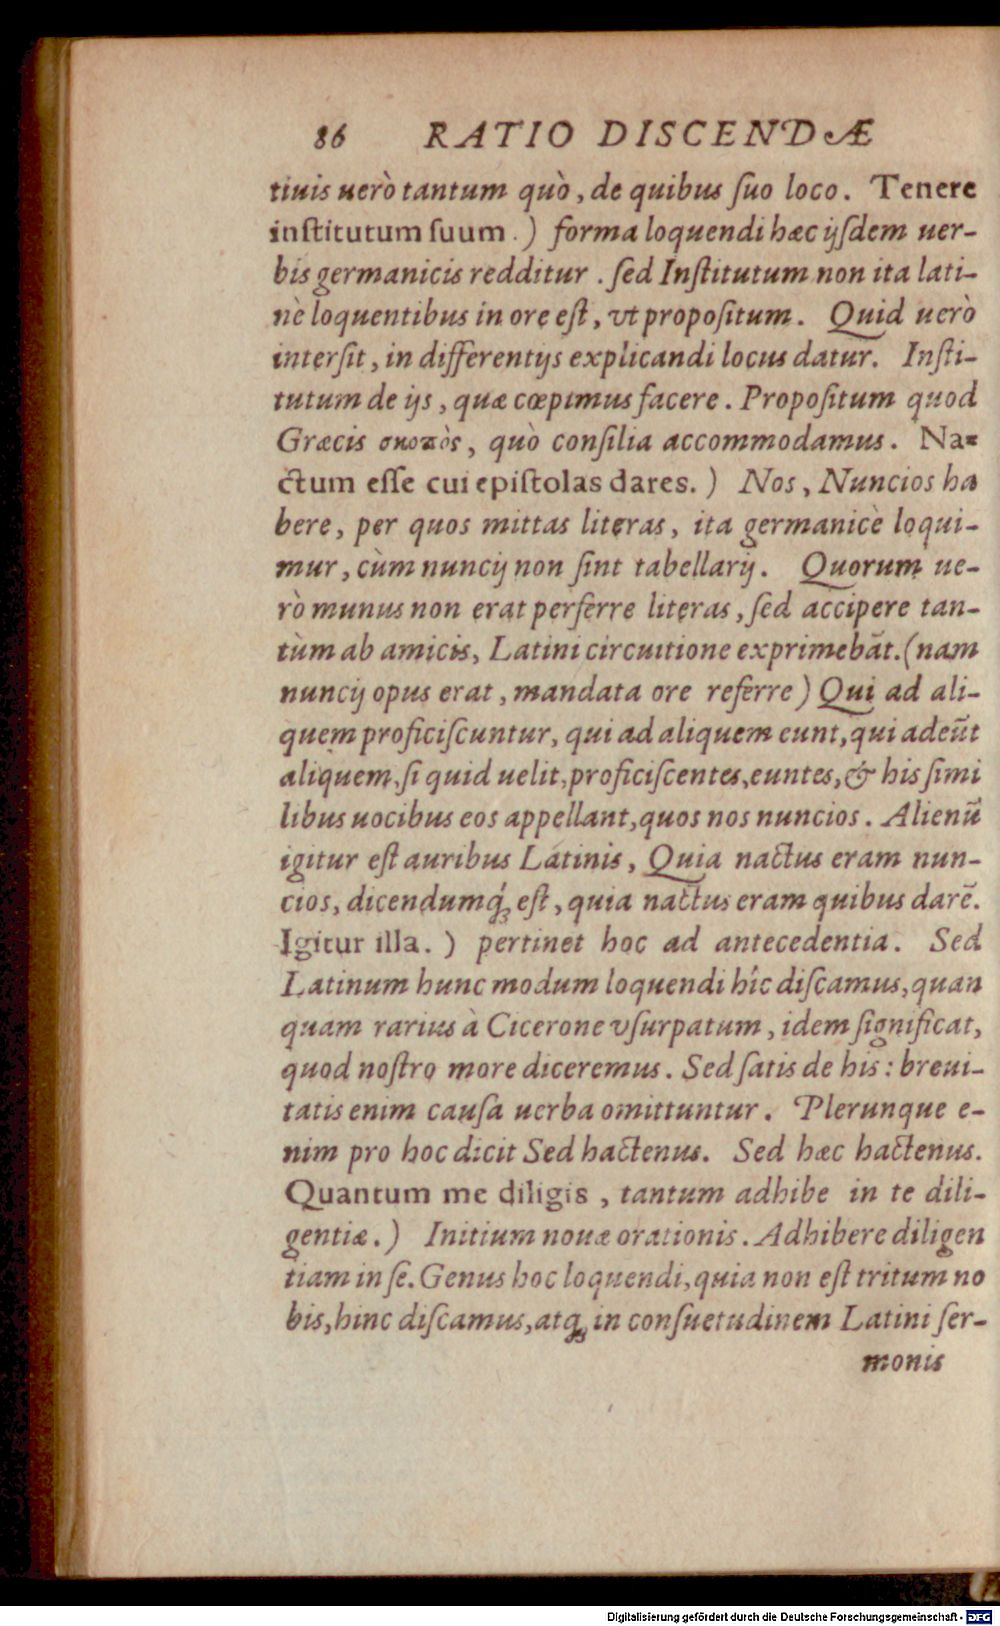 86 RATIO DISCENDÆ
tiuis uerò tantum quò, de quibus ſuo loco. Tenere
inſtitutum ſuum.) forma loquendi hæc ijſdem uer-
bis germanicis redditur. ſed Inſtitutum non ita lati-
nè loquentibus in ore eſt, vt propoſitum. Quid uerò
interſit, in differentijs explicandi locus datur. Inſti-
tutum de ijs, quæ cœpimus facere. Propoſitum quod
Græcis σκοπὸς, quò conſilia accommodamus. Na-
ctum eſſe cui epiſtolas dares.) Nos, Nuncios ha
bere, per quos mittas literas, ita germanicè loqui-
mur, cùm nuncij non ſint tabellarij. Quorum ue-
rò munus non erat perferre literas, ſed accipere tan-
tùm ab amicis, Latini circuitione exprimebāt. (nam
nuncij opus erat, mandata ore referre) Qui ad ali-
quem proficiſcuntur, qui ad aliquem eunt, qui adeūt
aliquem, ſi quid uelit, proficiſcentes, euntes, & his ſimi
libus uocibus eos appellant, quos nos nuncios. Alienū
igitur eſt auribus Latinis, Quia nactus eram nun-
cios, dicendumq́ꝫ eſt, quia nactus eram quibus darē.
Igitur illa.) pertinet hoc ad antecedentia. Sed
Latinum hunc modum loquendi hîc diſcamus, quan
quam rarius à Cicerone vſurpatum, idem ſignificat,
quod noſtro more diceremus. Sed ſatis de his: breui-
tatis enim cauſa uerba omittuntur. Plerunque e-
nim pro hoc dicit Sed hactenus. Sed hæc hactenus.
Quantum me diligis, tantum adhibe in te dili-
gentiæ.) Initium nouæ orationis. Adhibere diligen
tiam in ſe. Genus hoc loquendi, quia non eſt tritum no
bis, hinc diſcamus, atqꝫ in conſuetudinem Latini ſer-
monis
Digitalisierung gefördert durch die Deutsche Forschungsgemeinschaft - DFG